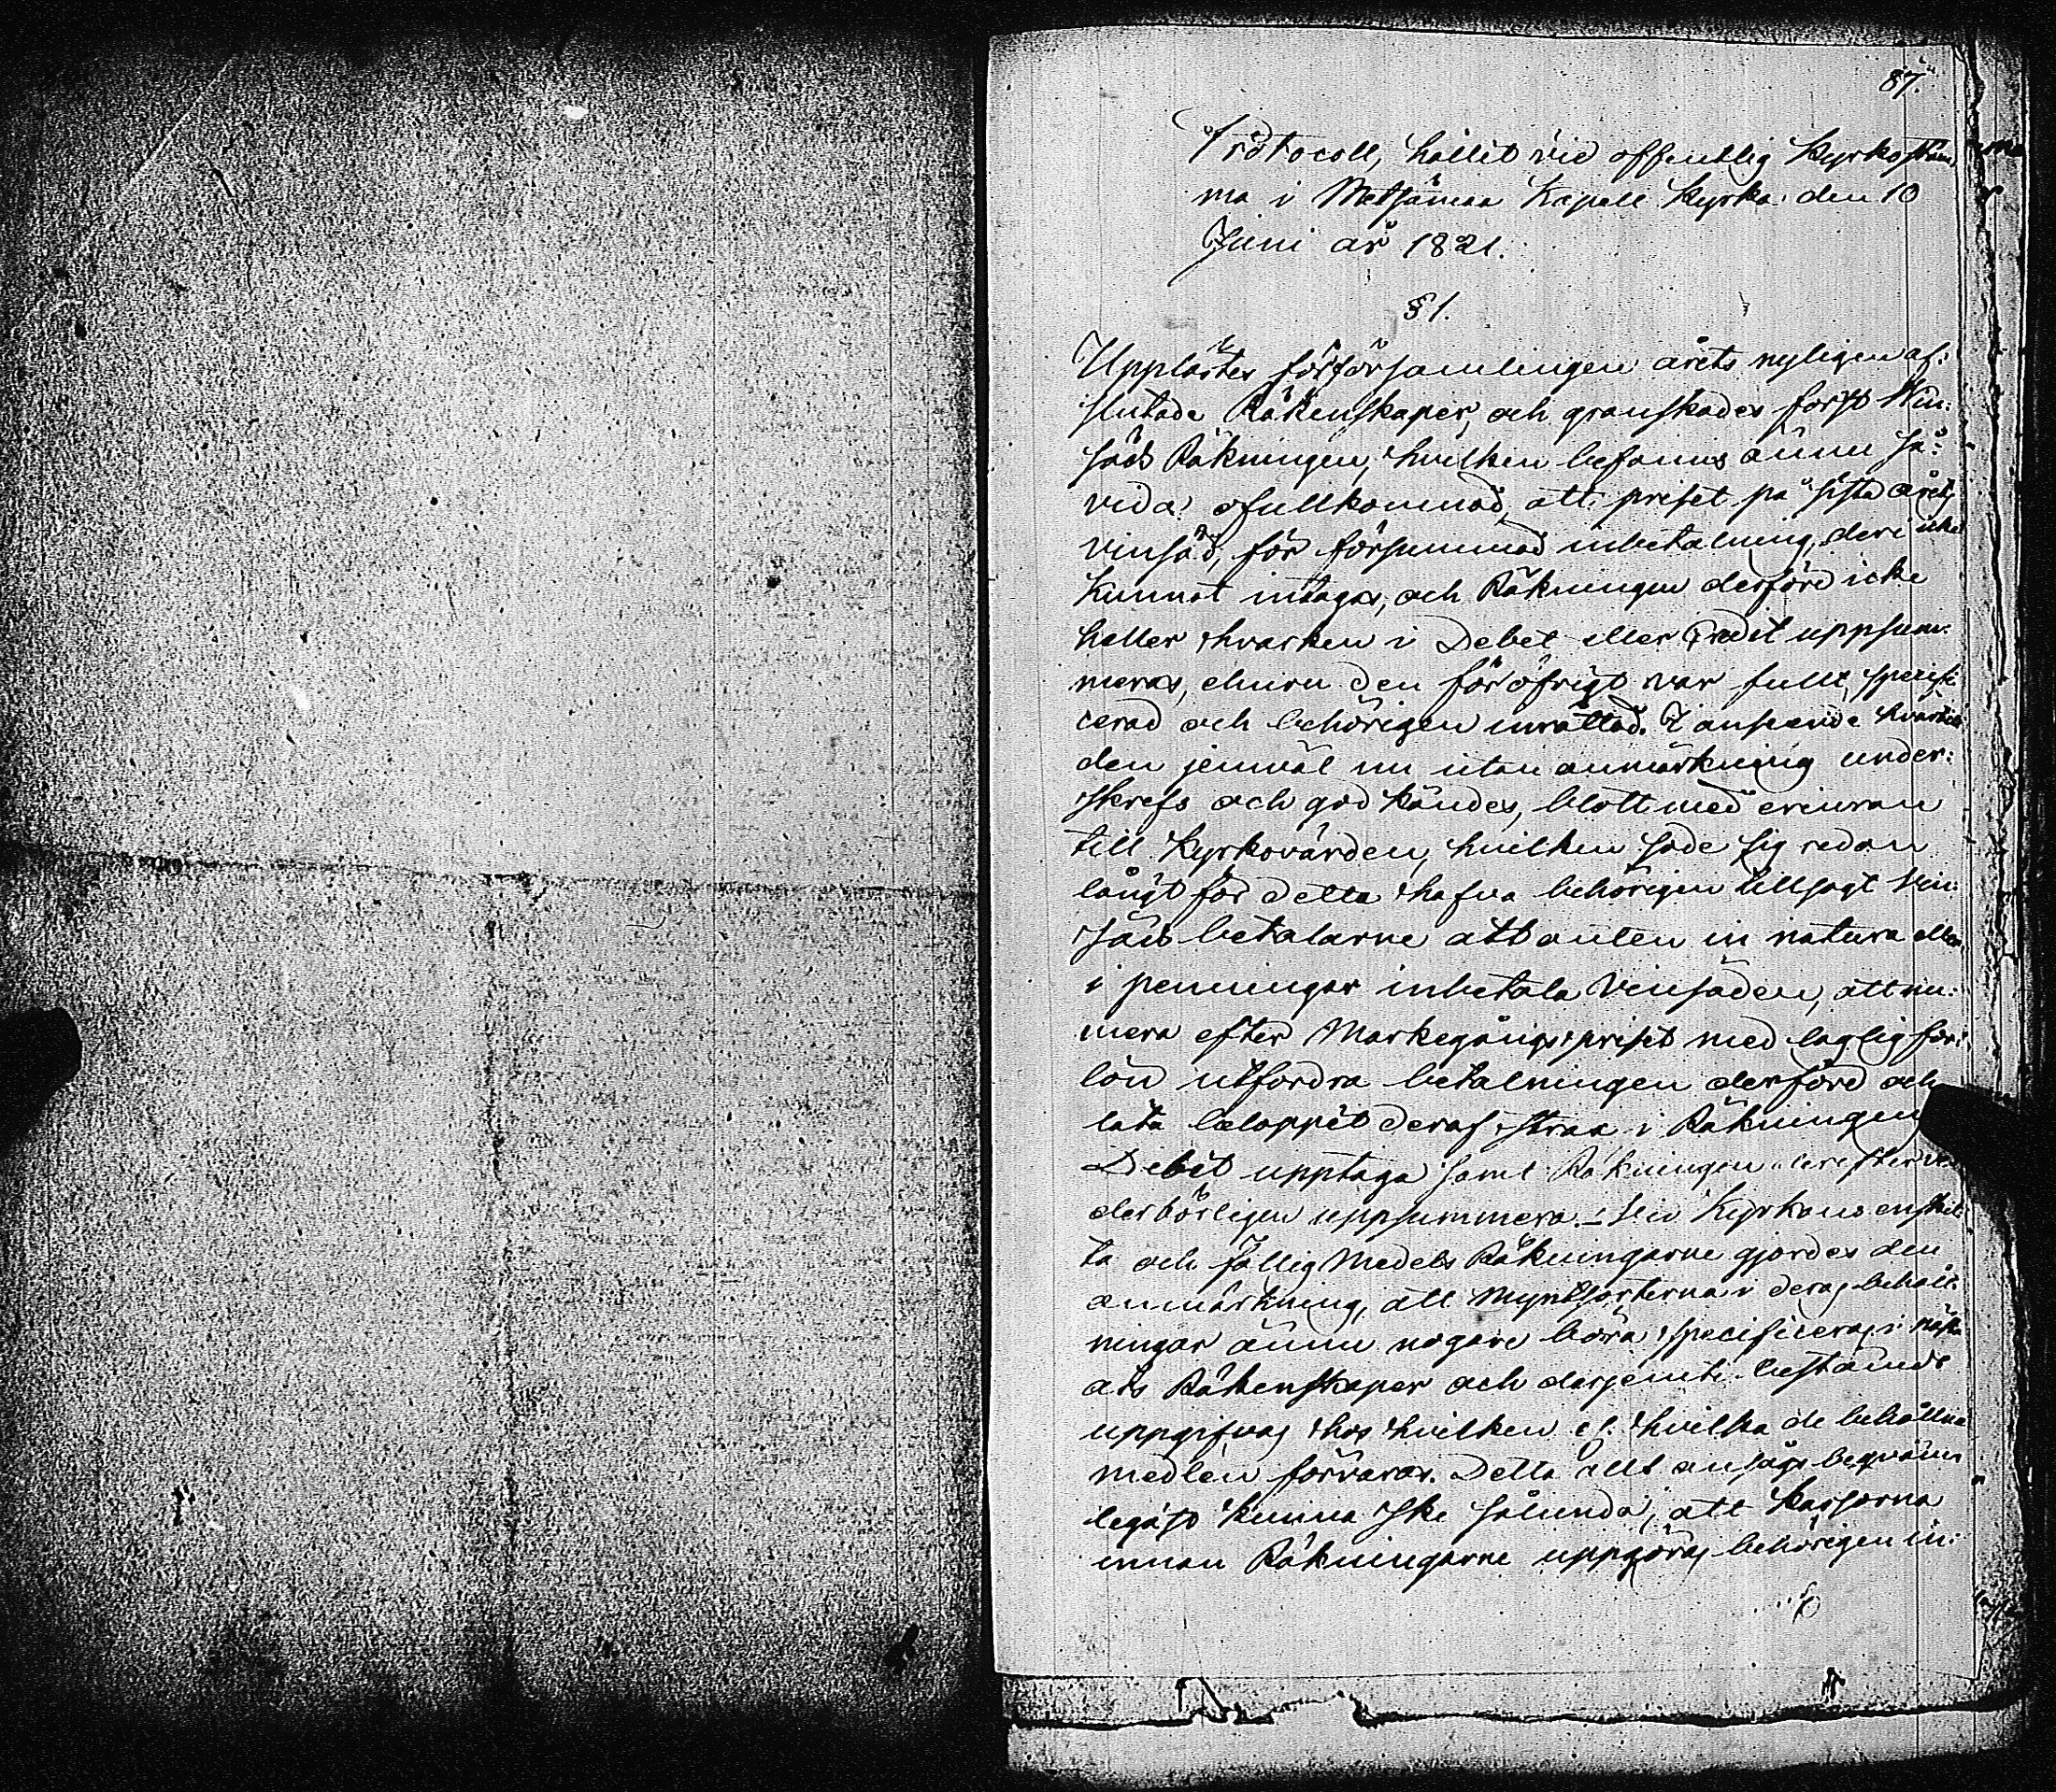 87.
Protocoll, hållit vid offentlig Kyrkostäm¬
ma i Metsämaa Kapell Kyrka den 10
Juni år 1821.
§ 1.
Upplästes för församlingen årets nyligen af:
slutade Räkenskaper, och granskades först Win:
säds Räkningen, hvilken befanns ännu så:
vida ofullkomnad, att priset på sista årets
vinsäd, för försummad inbetalning, deri icke
kunnat intagas, och Räkningen derföre icke
heller hvarken i Debet eller Credit uppsum:
meras, ehuru den föröfrigt var fullt specifi
cerad och behörigen inrättad. I anseende hvartill
den jemväl nu utan anmärkning under:
skrefs och godkändes, blott med erinran
till Kyrkovärden, hvilken sade sig redan
långt för detta hafva behörigen tillsagt Vin:
säds betalarne att antten in natura eller
i penningar inbetala Vinsäden, att nu:
mera efter Markegångs priset med laglig för:
lön utfordra betalningen derföre och
låta beloppet deraf strax i Räkningens
Debet upptaga samt Räkningen derefter
derbörligen uppsummera. – Vid Kyrkans enskil
ta och fattig Medels Räkningarne gjordes den
anmärkning, att Myntsorterna i deras behåll:
ningar ännu nogare böra specificeras i nästa
års Räkenskaper och derjemte bestämdt
uppgifvas hos hvilken el. hvilka de behållna
medlen förvaras. Detta allt ansågs beqväm
ligast kunna ske sålunda, att Kassorna
innan Räkningarne uppgöras behörigen in: